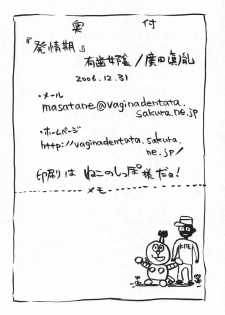 奥付
『発情期』
有歯女陰／廣田眞胤
2006.12.31
・メール
masatane@vaginadentata.
sakura.ne.jp
・ホームページ
http://vaginadentata.sakura.
ne.jp/
印刷はねこのしっぽ様だョ!
メモ